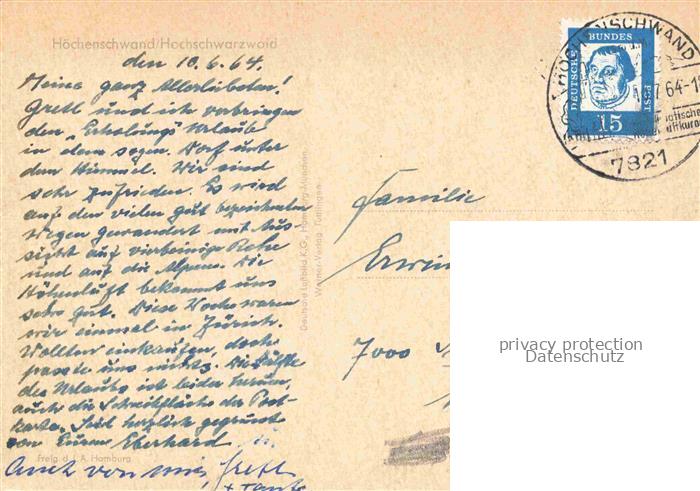 Höchenschwand/Hochschwarzwald
den 10.6.64.
Meine ganz Allerliebsten!
Gretl und ich verbringen
den "Erholungs" Urlaub
in dem sogen. Dorf unter
dem Himmel. Wir sind
sehr zufrieden. Es wird
auf den vielen gut bezeichneten
Wegen gewandert mit Aus-
sicht auf vierbeinige Rehe
und auf die Alpen. Die
Höhenluft bekommt uns
sehr gut. Diese Woche waren
wir einmal in Zürich.
Wollten einkaufen, doch
passte uns nichts. Die Hälfte
des Urlaubs ist leider herum,
auch die Schreibfläche der Post-
karte. Seid herzlich gegrüsst
von Eurem Eberhard
Freig. d. L.A. Hamburg
Auch von mir, Gretl
+ Tante
Deutsche Luftbild K.G., Hamburg-München
Werner-Verlag, Tuttlingen
HÖCHENSCHWAND
64-1
7821
DEUTSCHE BUNDES POST
15
Familie
Erwin
7000
privacy protection
Datenschutz